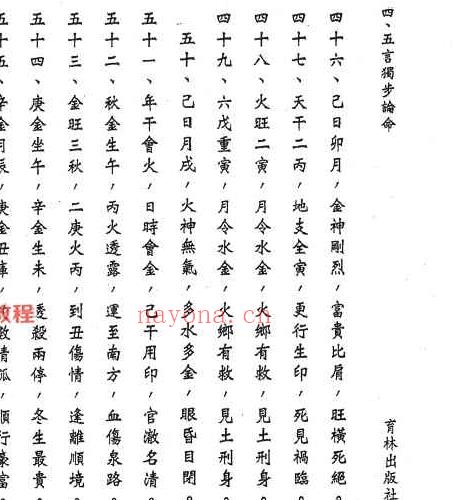 四、五言獨步論命
育林出版社
四十六、己日卯月，金神剛烈，富貴比肩，旺橫死絕。
四十七、天干二丙，地支全寅，更行生印，死見禍臨。
四十八、火旺二寅，月令水金，火鄉有救，見土刑身。
四十九、六戊重寅，月令水金，火鄉有救，見土刑身。
五十、己日月戌，火神無氣，多水多金，眼昏目閉。
五十一、年干會火，日時會金，己干用印，官澈名清。
五十二、秋金生午，丙火透露，運至南方，血傷泉路。
五十三、金旺三秋，二庚火丙，到丑傷情，逢離順境。
五十四、庚金坐午，辛金生未，透殺兩停，冬生最貴。
五十五、辛金月辰，庚金丑庫，數清孤，順行豪富
教程
nayona.cn